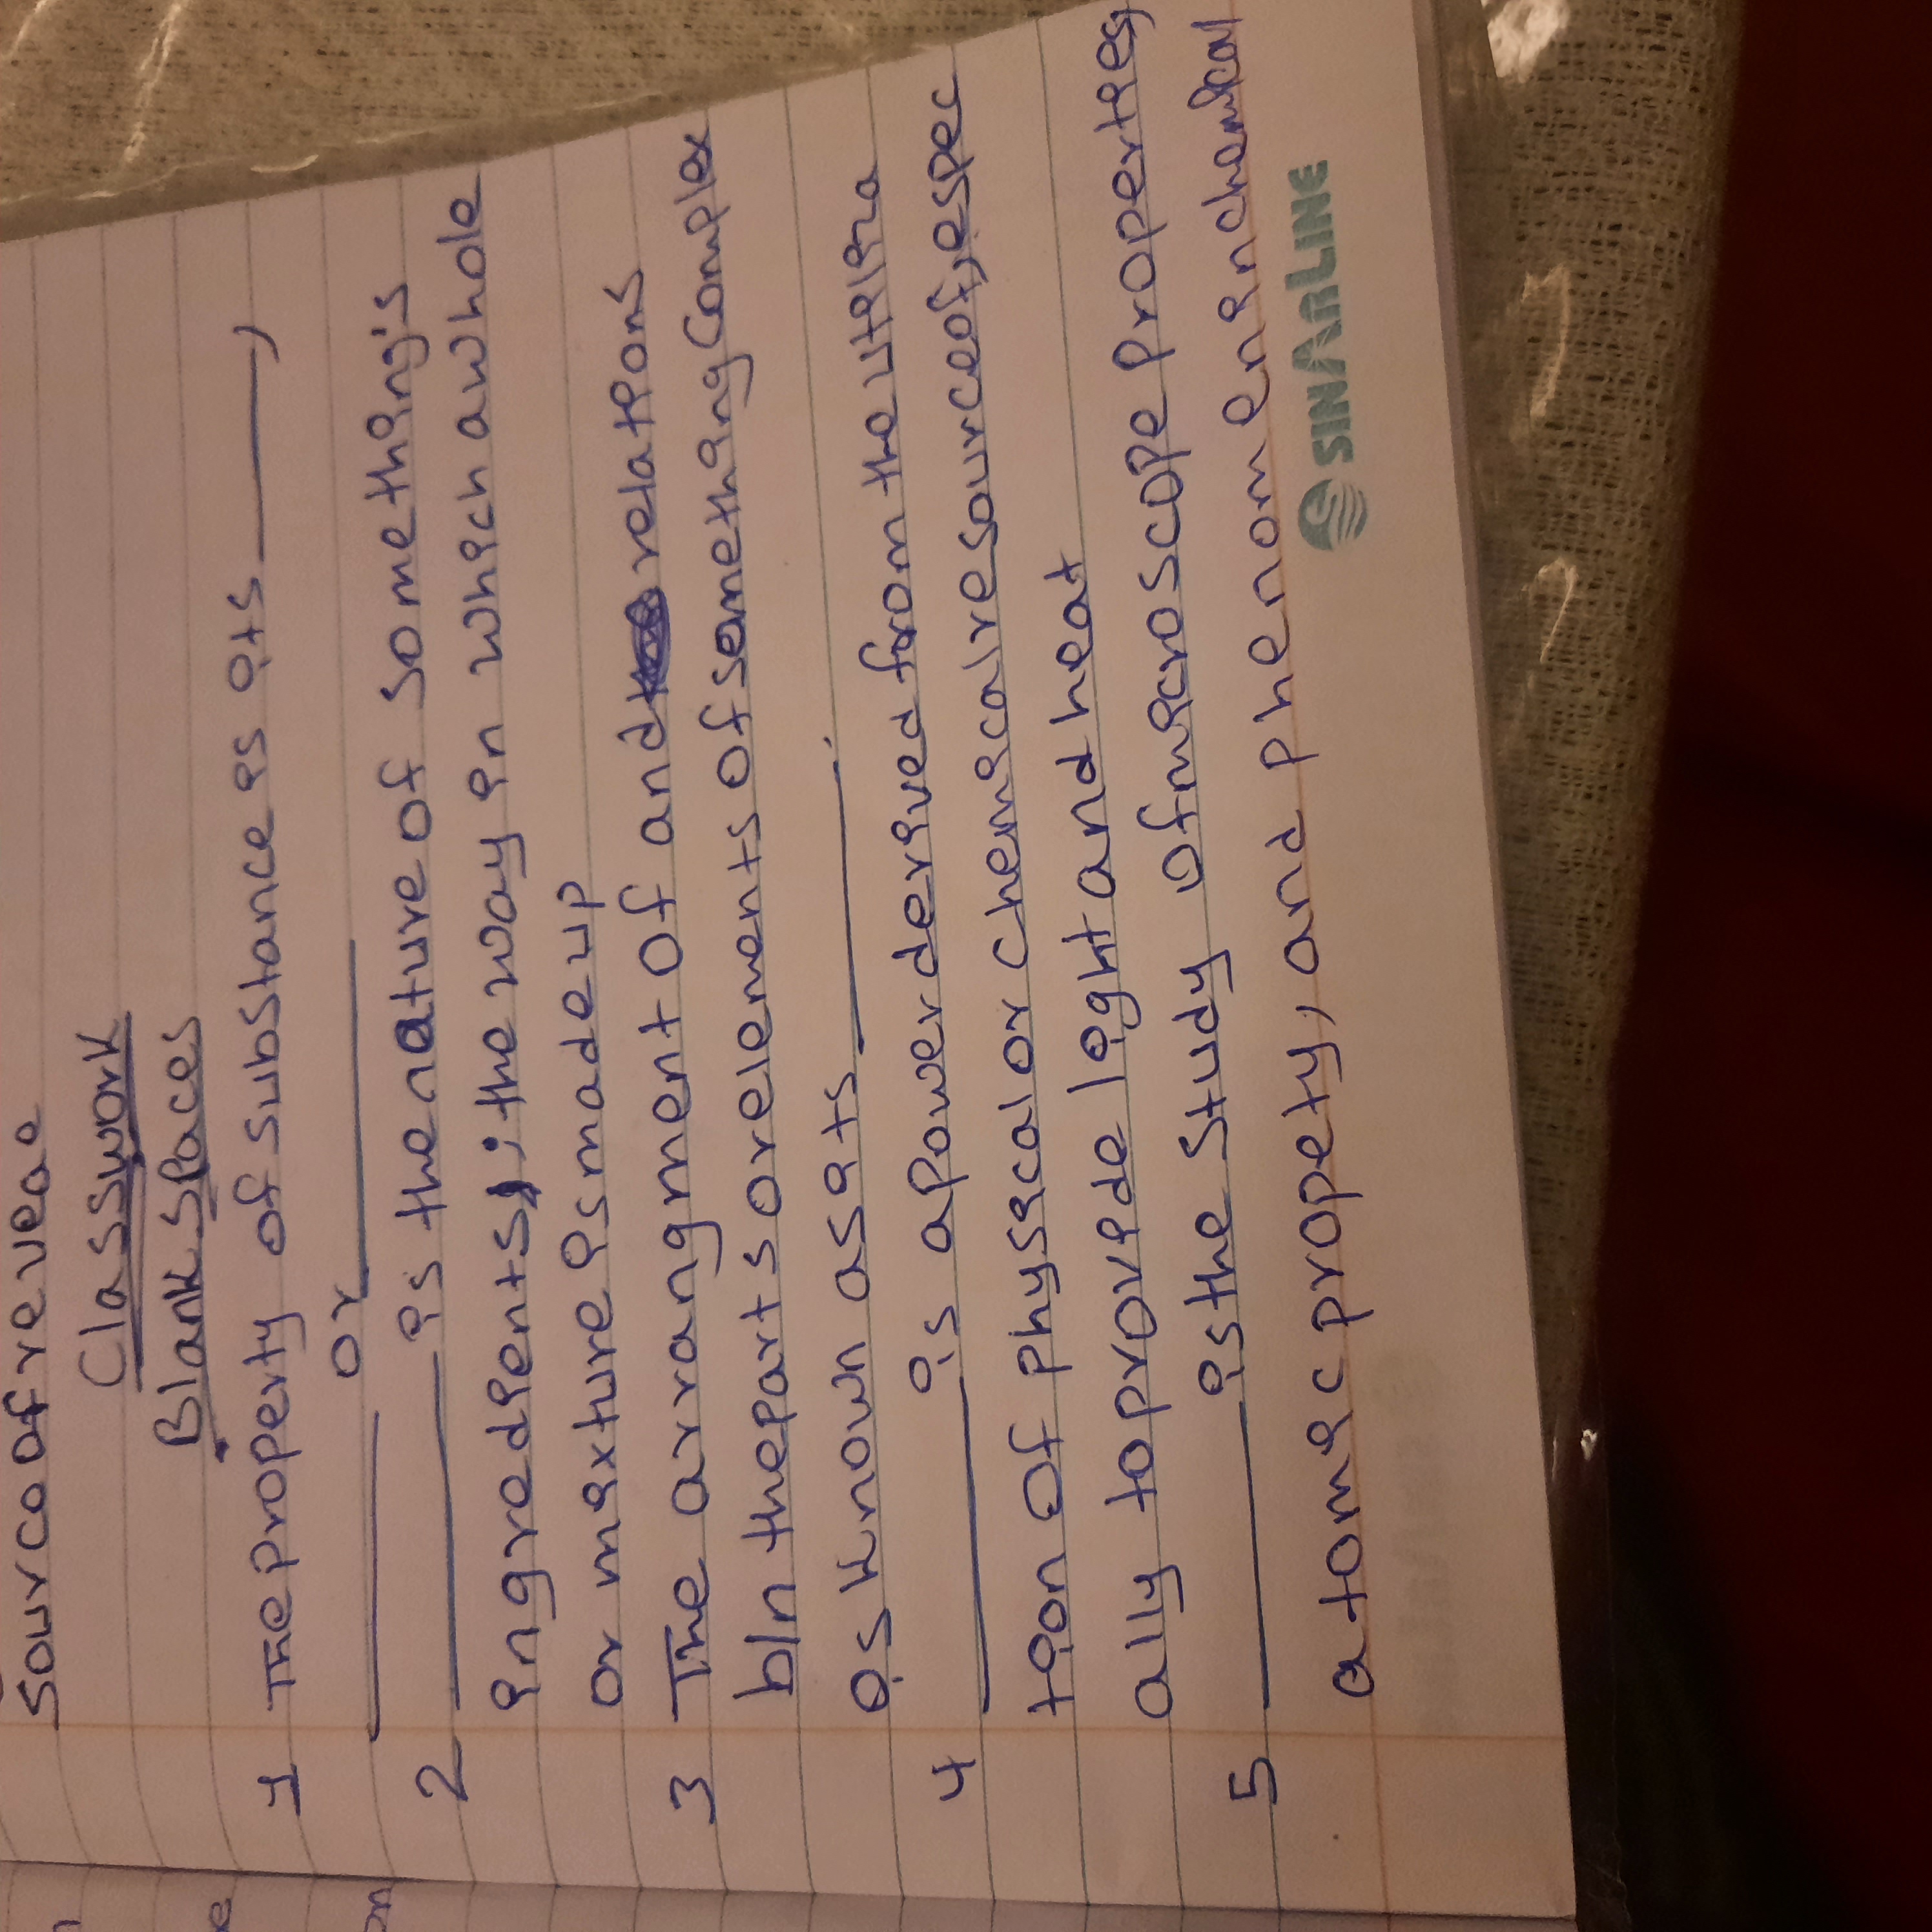 source of reveae
Classwork
Blank Spaces
1 The property of substance is its ______,
______ or ______
2 ______ is the nature of something's
ingredients; the way in which a whole
or mixture is made up
3 The arrangment of and relations
b/n the parts or elements of something Complex
is known as its ______.
4 ______ is a power derived from the utiliza
tion of physical or chemical resource of, espec
ally to provide light and heat
5 ______ is the study of microscope properties,
atomic propety, and phenomen in chemical
SINARLINE